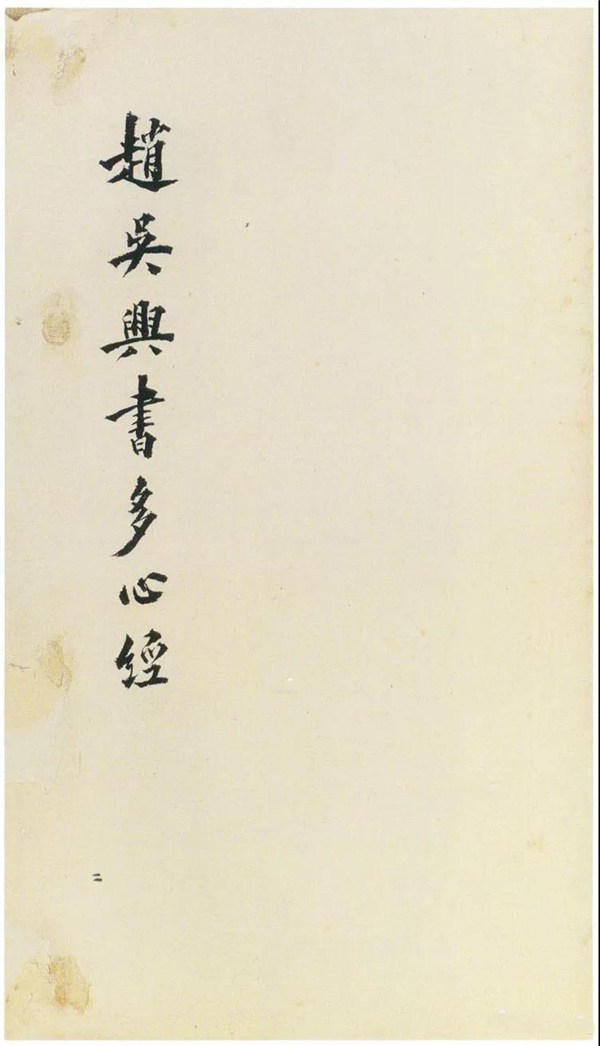 趙吳興書多心經
二